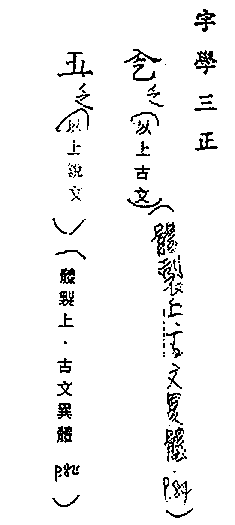 字學三正
乏（以上古文）（體製上·古文異體 P.84）
乏（以上說文）（體製上·古文異體